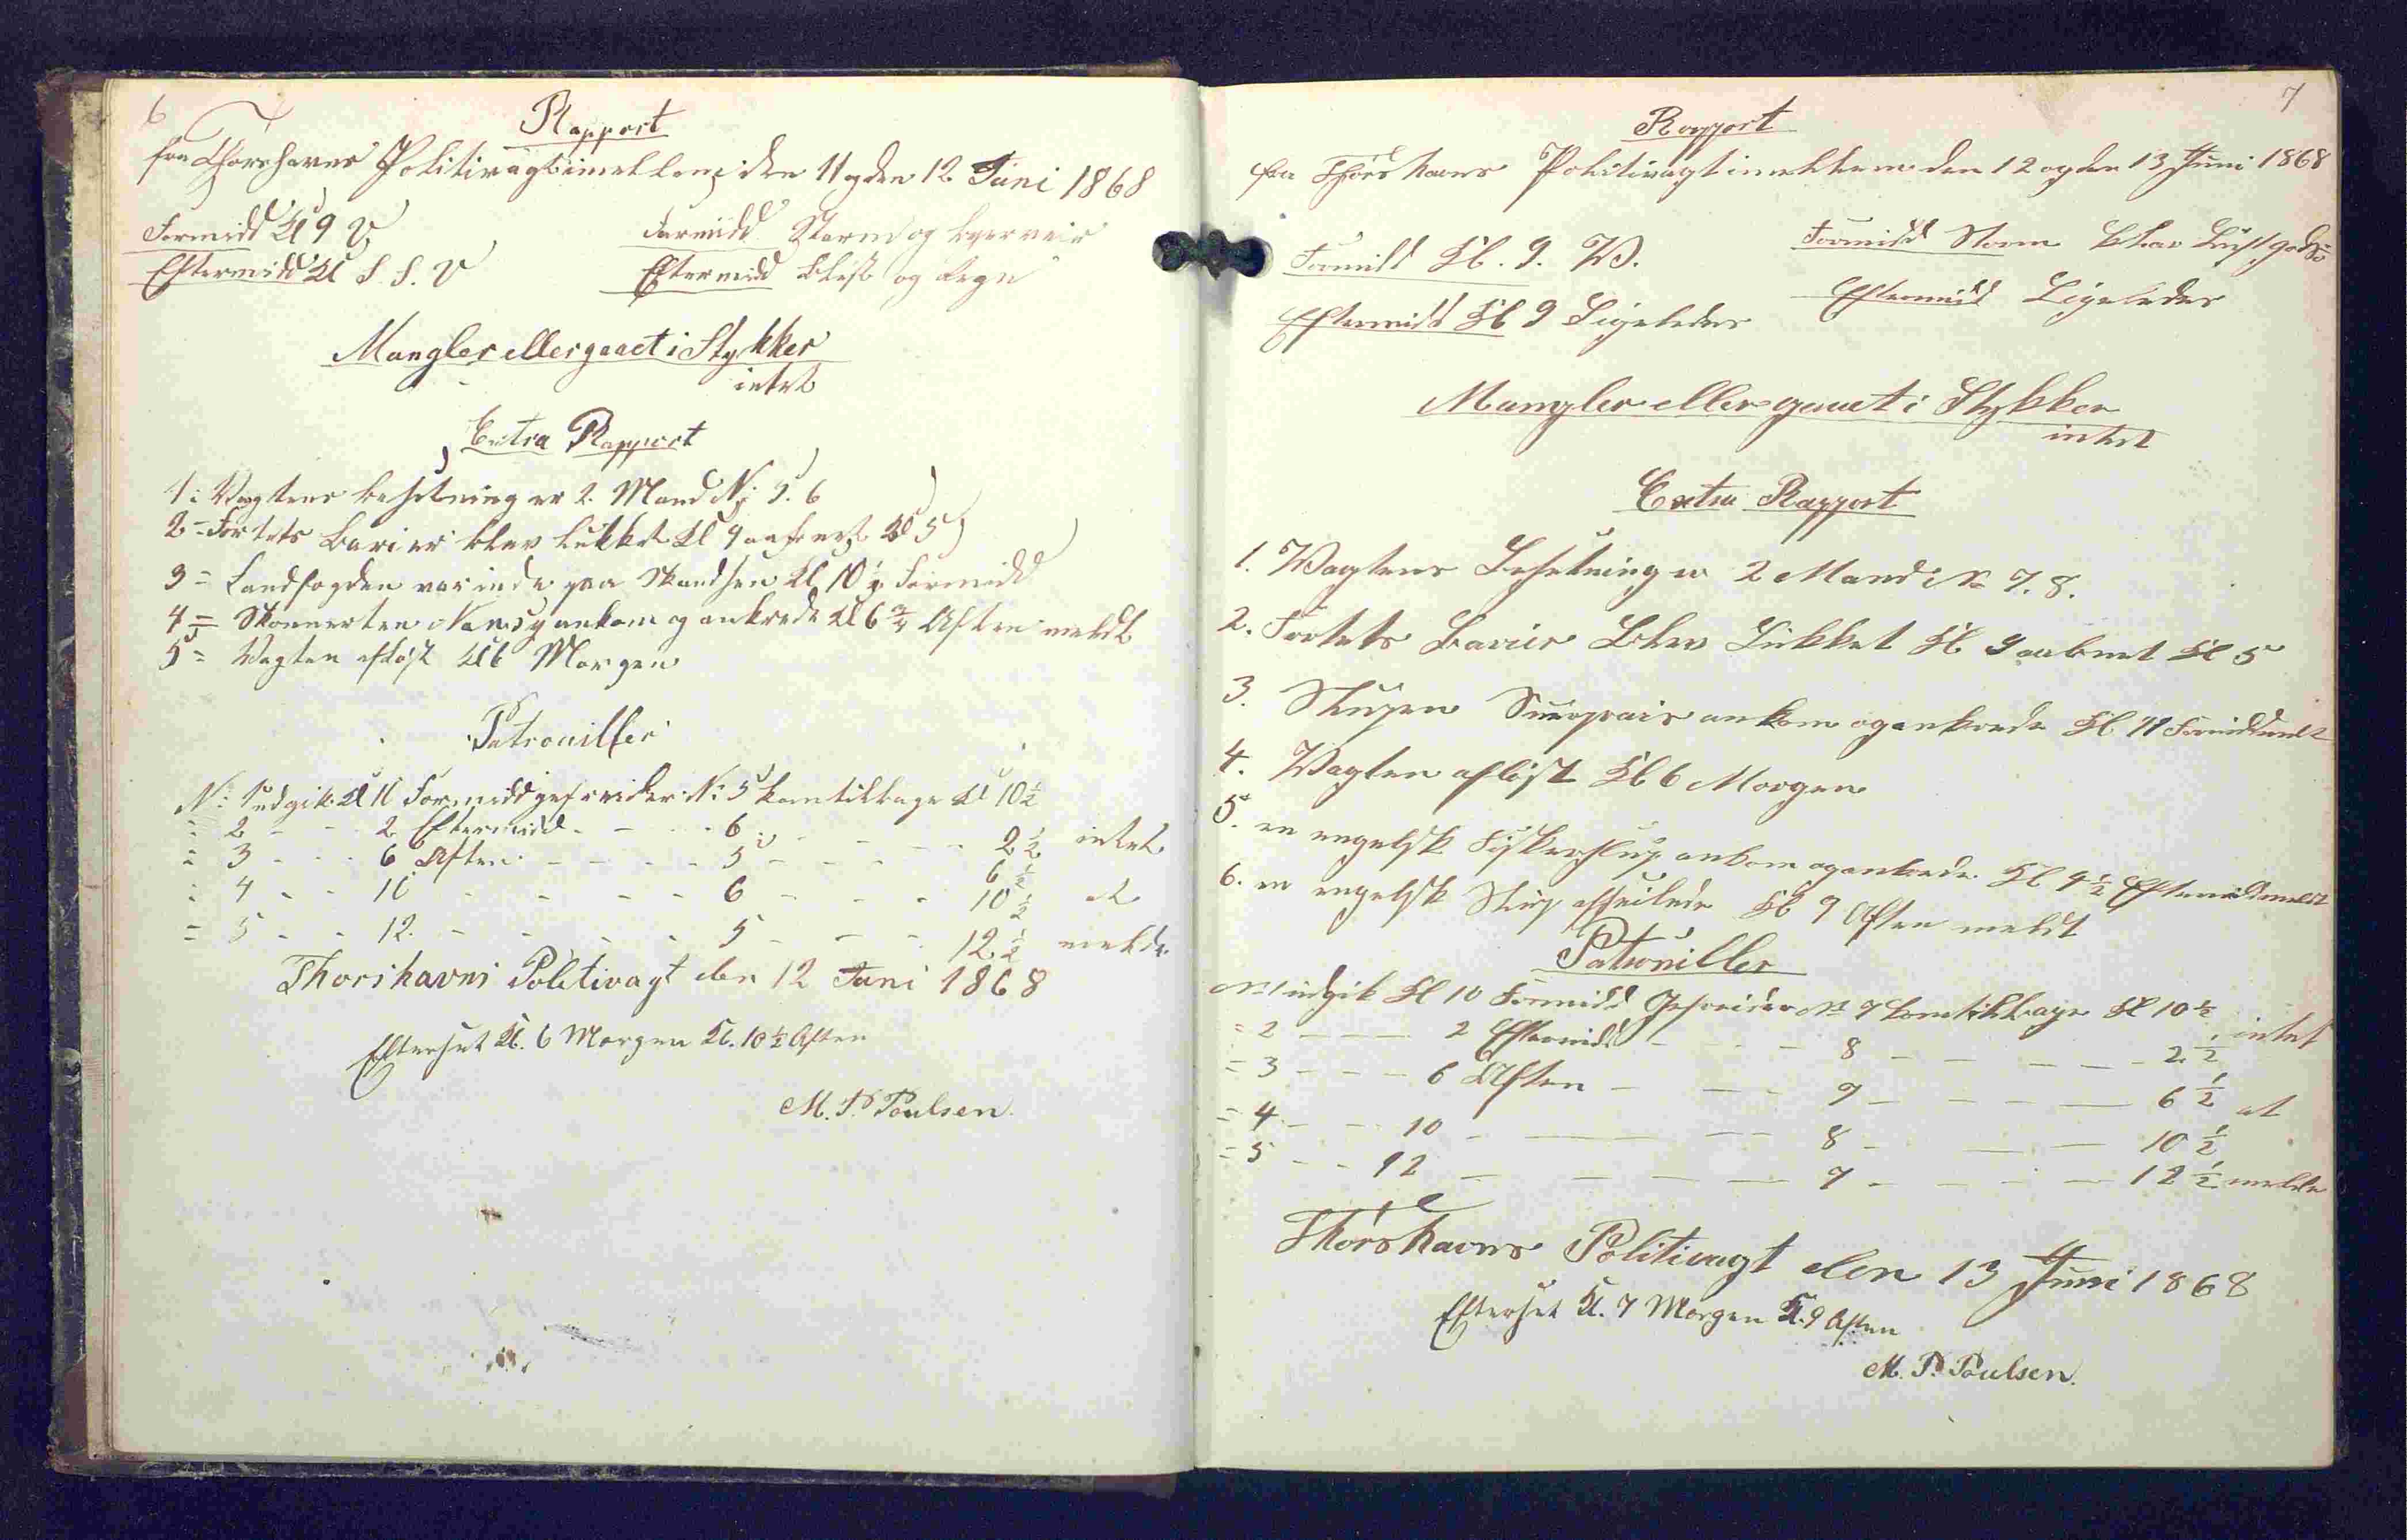 6
Rapport
fra Thorshavns Politivagt imellem den 11 og den 12 Juni 1868
Formidd Kl 9 V
Formidd Storm og
Eftermidd Kl S. S. V
Eftermidd Blæst og Regn
Mangler eller gaaet i Stykker
intet
Extra Rapport
1: Vagtens besetning er 2. Mand N: 5. 6
2 = Fortets Barier blev lukket Kl 9 aabnet Kl 5
3 = Landfogden var inde paa Skandsen Kl 10 1/2 Formidd
4 = Skonnerten Nancy ankom og ankrede Kl 6 3/4 Aften meldt
5 = Vagten afløst Kl 6 Morgen
Patrouiller
N: 1 udgik Kl 10 Formidd gefreider N: 5 kom tilbage Kl 10 1/2
= 2 - - 2 Eftermidd - - 6 - - - 2 1/2 intet
= 3 - - 6 Aften - - - 5 - - - 6 1/2
= 4 - - 10 - - - 6 - - - 10 1/2 at
= 5 - - 12 - - - 5 - - - 12 1/2 melde
Thorshavns Politivagt den 12 Juni 1868
Efterset Kl. 6 Morgen Kl. 10 1/2 Aften
M. P. Poulsen.
7
Rapport
fra Thorshavns Politivagt imellem den 12 og den 13 Juni 1868
Formidd Kl. 9. W.
Formidd Storm klar Luft
Eftermidd Kl 9 Ligeledes
Eftermidd Ligeledes
Mangler eller gaaet i Stykker
intet
Extra Rapport
1. Vagtens Besetning er 2 Mand No 7. 8.
2. Fortets Barier Blev Lukket Kl 9 aabnet Kl 5
3. Slupen ankom og ankrede Kl 11 Formidd meldt
4. Vagten afløst Kl 6 Morgen
5. en engelsk Fiskerslup ankom og ankrede Kl 4 1/2 Eftermidd meldt
6. en engelsk Slup afseilede Kl 9 Aften meldt
Patrouiller
No 1 udgik Kl 10 Formidd Gefreider No 7 kom tilbage Kl 10 1/2
= 2 - - 2 Eftermidd - - 8 - - - 2 1/2 intet
= 3 - - 6 Aften - - 7 - - - 6 1/2 at
= 4 - - 10 - - - 8 - - - 10 1/2
= 5 - - 12 - - - 7 - - - 12 1/2 melde
Thorshavns Politivagt den 13 Juni 1868
Efterset Kl. 7 Morgen Kl. 9 Aften
M. P. Poulsen.